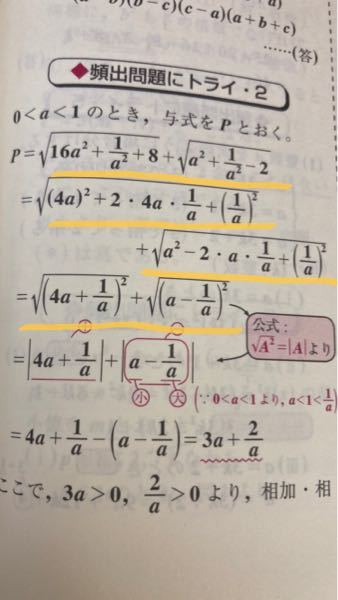 (b-c)(c-a)(a+b+c)
……(答)
◆頻出問題にトライ・2
0<a<1のとき,与式をPとおく。
P=√(16a²+1/a²+8)+√(a²+1/a²-2)
=√((4a)²+2・4a・1/a+(1/a)²)
+√(a²-2・a・1/a+(1/a)²)
=√((4a+1/a)²)+√((a-1/a)²)
公式:
√A²=|A|より
⊕ ⊖
=|4a+1/a|+|a-1/a|
小 大 (∵0<a<1より,a<1<1/a)
=4a+1/a-(a-1/a)=3a+2/a
ここで,3a>0,2/a>0より,相加・相